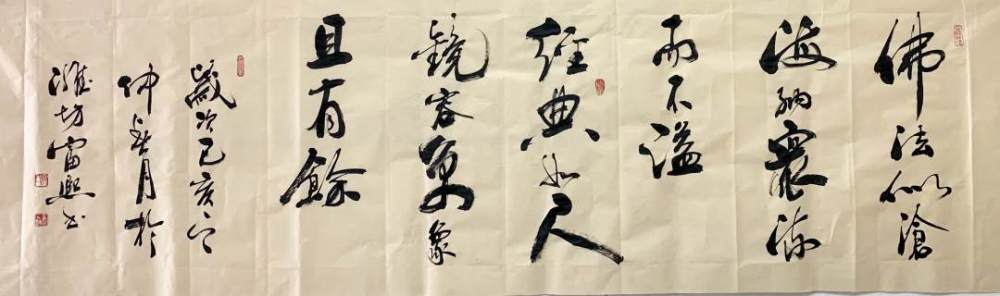 佛法似滄
海納衆流
而不溢
經典如尺
鏡容萬象
且有餘
歲次己亥之
仲春月於
濰坊雷熙书